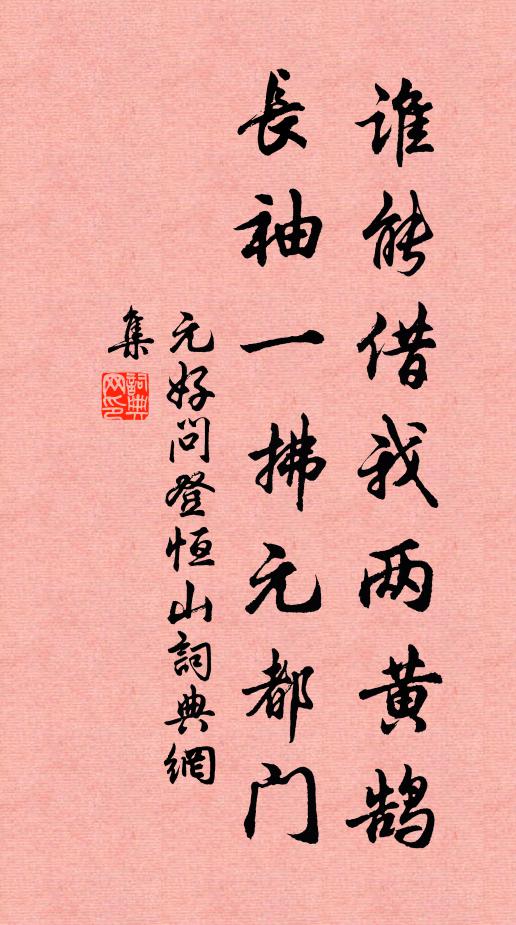 谁能借我两黄鹄
長袖一拂元都门
元好问登恒山詞典網
集
詞典网印